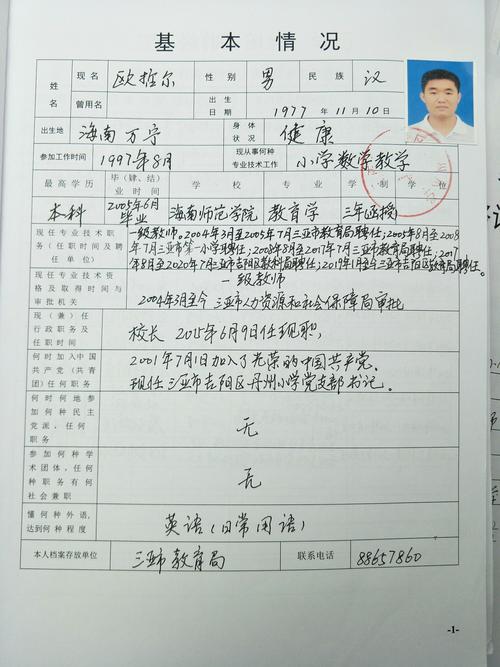 基本情况
姓名 现名 欧拉尔 性别 男 民族 汉
曾用名 出生日期 1977年11月10日
出生地 海南万宁 身体状况 健康
参加工作时间 1997年8月 现从事何种专业技术工作 小学数学教学
最高学历 毕(肄、结)业时间 学校 专业 学制 学位
本科 2005年6月毕业 海南师范学院 教育学 三年函授
现任专业技术职务(任职时间及聘任单位) 一级教师。2004年3月至2005年7月三亚市教育局聘任;2005年8月至2008
年7月三亚市第一小学聘任;2008年8月至2017年7月三亚市教育局聘任;2017
年8月至2020年7月三亚市吉阳区教科局聘任;2019年1月至今三亚市吉阳区教育局聘任。
现任专业技术资格及取得时间与审批机关 一级教师
2004年3月至今 三亚市人力资源和社会保障局审批
现(兼)任行政职务及任职时间 校长 2015年6月9日任现职。
何时加入中国共产党(共青团)任何职务 2001年7月1日加入了光荣的中国共产党。
现任三亚市吉阳区丹州小学党支部书记。
何时何地参加何种民主党派,任何职务 无
参加何种学术团体,任何种职务有何社会兼职 无
懂何种外语,达到何种程度 英语(日常用语)
本人档案存放单位 三亚市教育局 联系电话 88657860
-1-